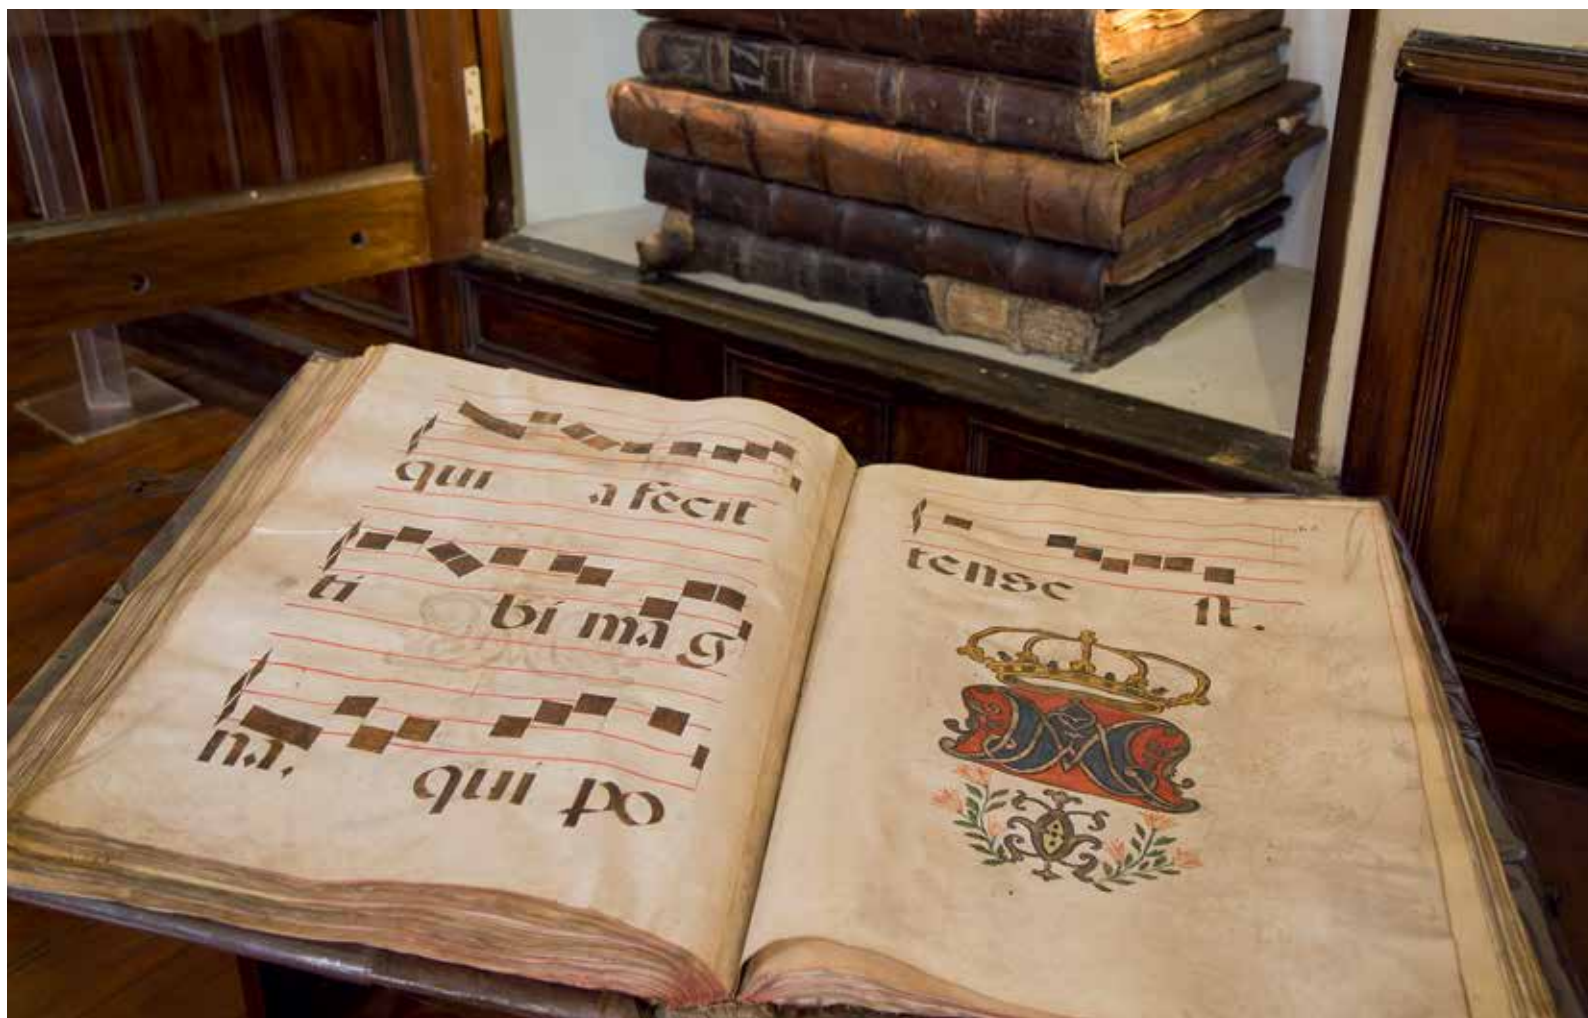 17
qui a fecit
ti bi ma g
na. qui po
tense st.